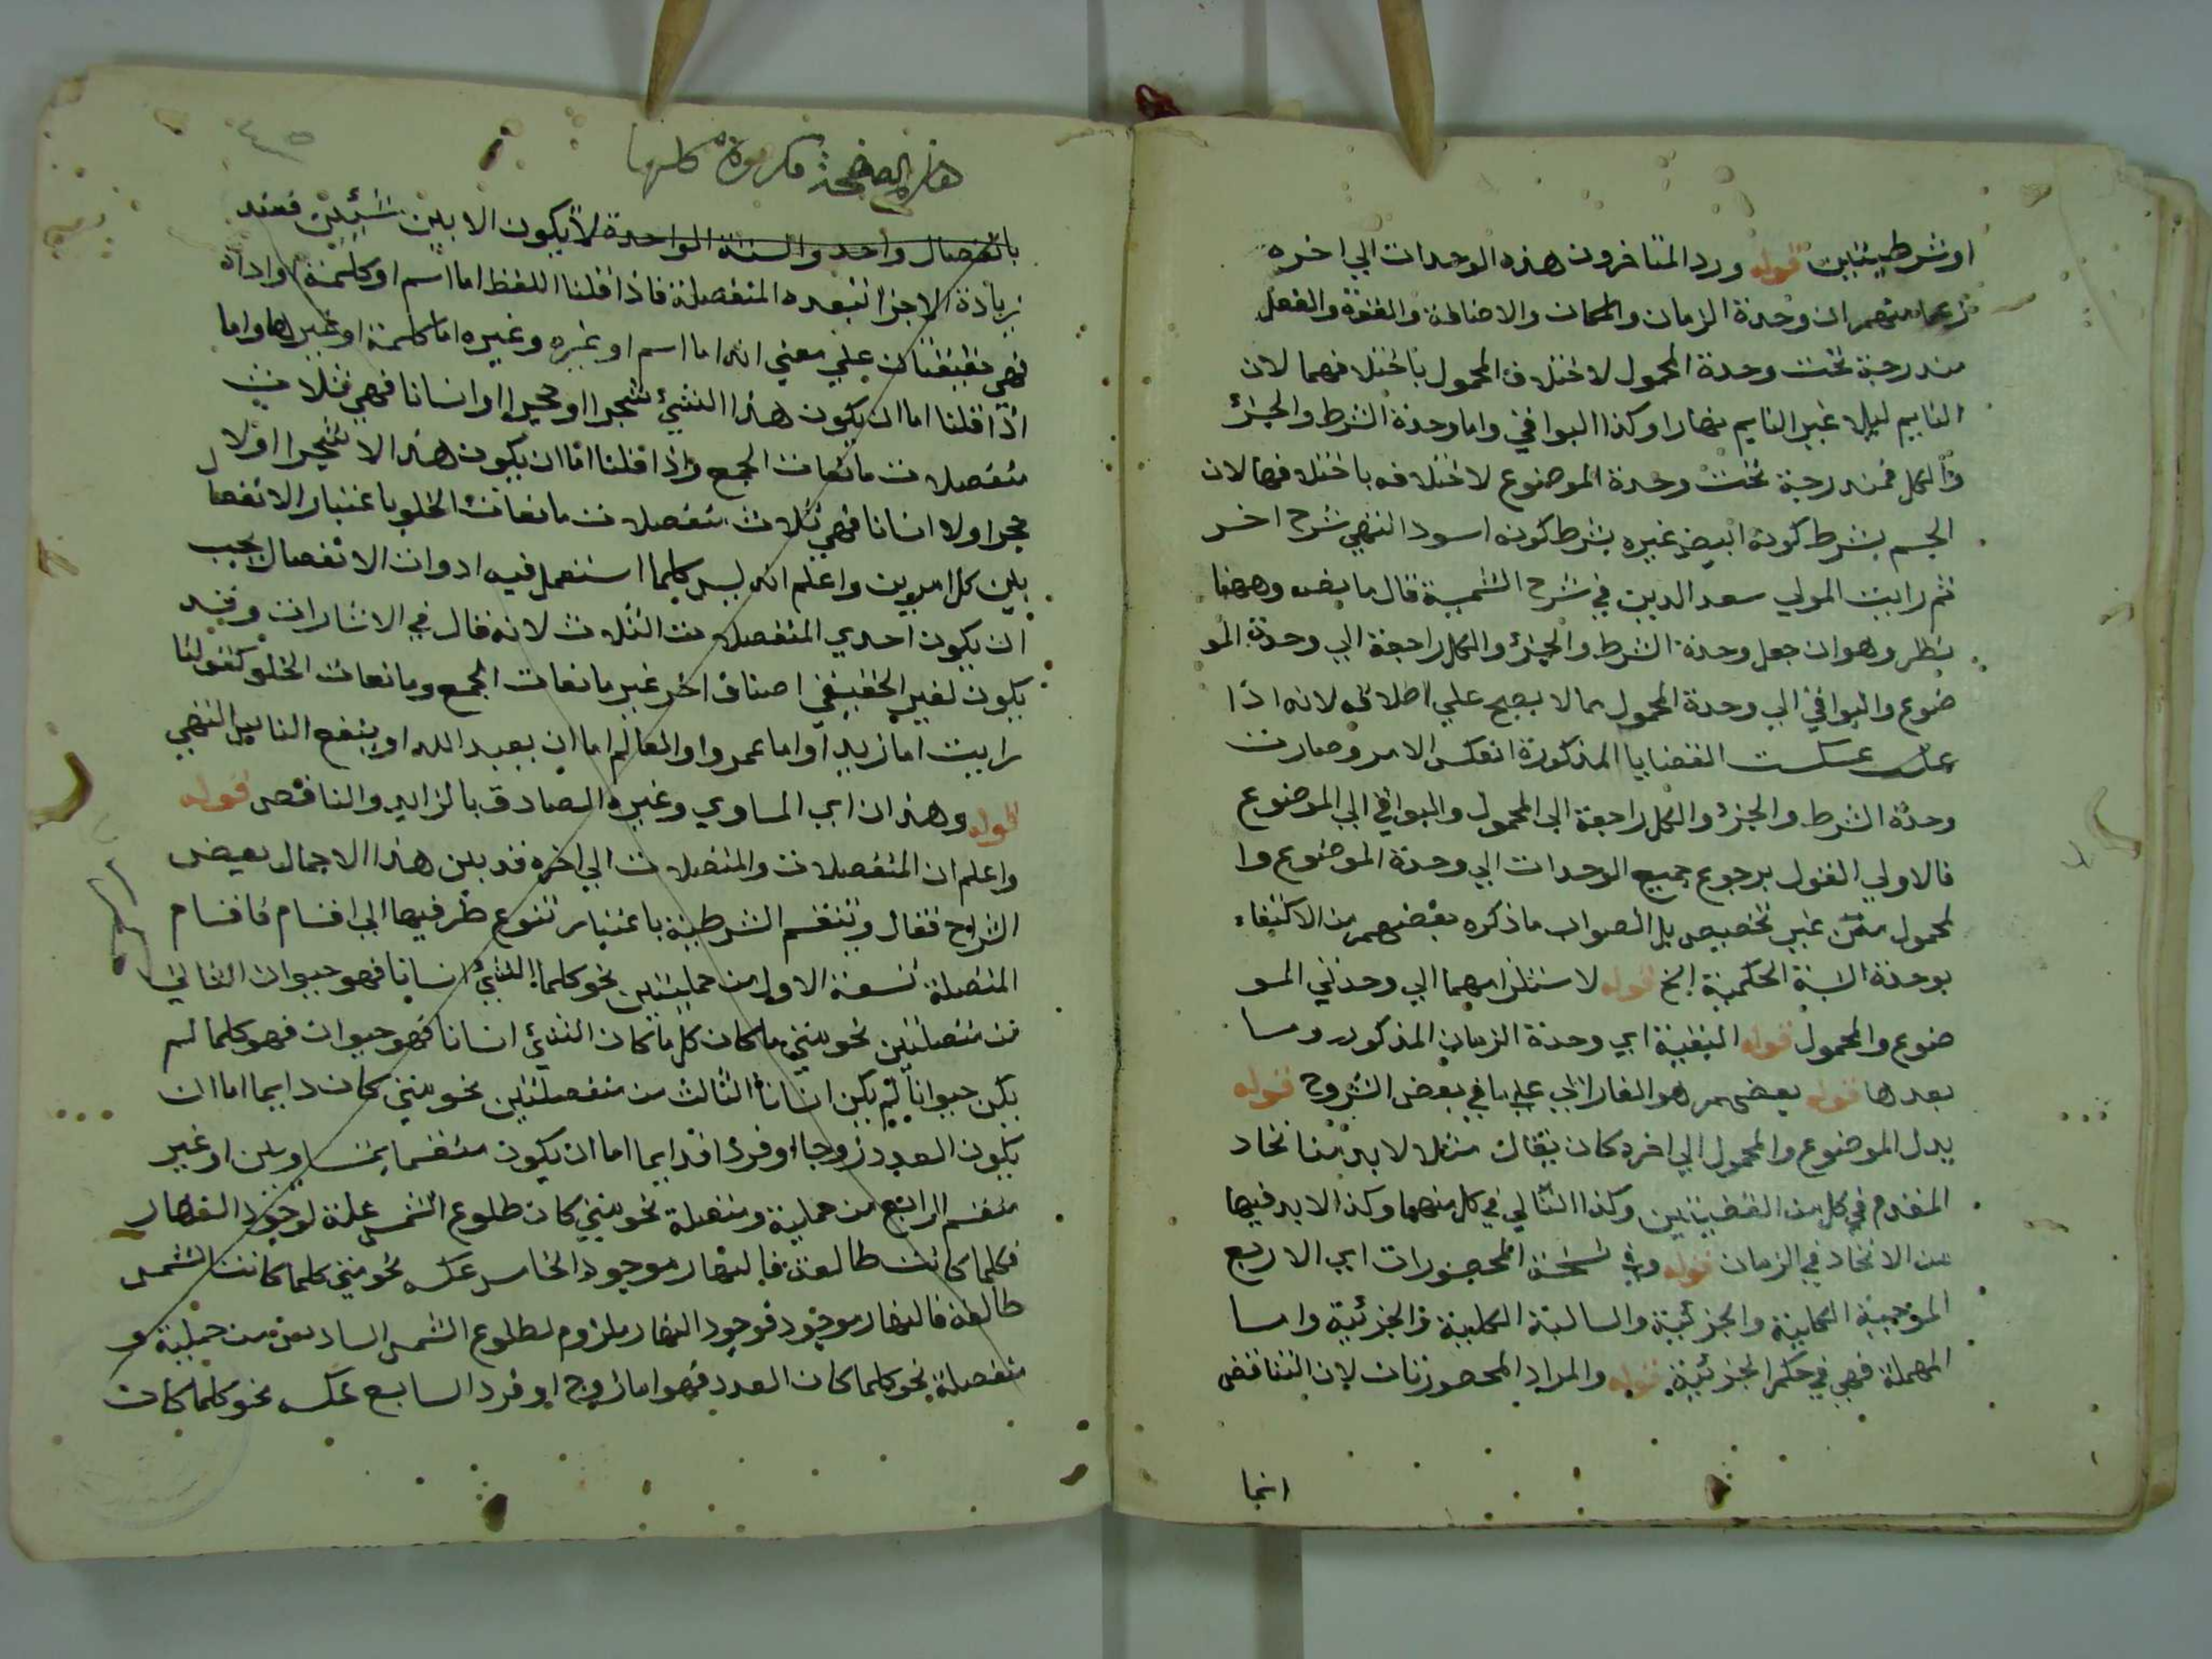 او شرطيتين قوله ورد المتاخرون هذه الوحدات الي اخره
زعما منهم ان وحدة الزمان والمكان والاضافة والقوة والفعل
مندرجة تحت وحدة المحمول لاختلاف المحمول باختلافهما لان
النايم ليلا غير النايم نهارا وكذا البواقي واما وحدة الشرط والجزئ
والكل فمندرجة تحت وحدة الموضوع لاختلافه باختلافها لان
الجسم بشرط كونه ابيض غيره بشرط كونه اسود انتهي شرح اخر
ثم رايت المولي سعد الدين في شرح الشمسية قال ما نصه وههنا
نظر وهو ان جعل وحدة الشرط والجزئ والكل راجعة الي وحدة المو
ضوع والبواقي الي وحدة المحمول مما لا يصح علي اطلاقه لانه اذا
عكست القضايا المذكورة انعكس الامر وصارت
وحدة الشرط والجزء والكل راجعة الي المحمول والبواقي الي الموضوع
فالاولي القول برجوع جميع الوحدات الي وحدة الموضوع وا
لمحمول من غير تخصيص بل الصواب ما ذكره بعضهم من الاكتفاء
بوحدة النسبة الحكمية الخ قوله لاستلزامهما الي وحدتي المو
ضوع والمحمول قوله البقية اي وحدة الزمان المذكور وما
بعدها قوله بعضهم هو الفارابي علي ما في بعض الشروح قوله
بدل الموضوع والمحمول الي اخره كان يقال مثلا لا بد من اتحاد
المقدم في كل من القضيتين وكذا التالي في كل منهما وكذا لا بد فيها
من الاتحاد في الزمان قوله وفي نسخة المحصورات اي الاربع
الموجبة الكلية والجزئية والسالبة الكلية والجزئية واما
المهملة فهي في حكم الجزئية قوله والمراد المحصورتان لان التناقض
انما
هذه الصفحة مكررة كلها
٤٥
بانفصال واحد والنسبة الواحدة لا يكون الا بين شيئين فعند
زيادة الاجزا تتعدد المنفصلة فاذا قلنا اللفظ اما اسم او كلمة او اداة
فهي حقيقتان علي معني انه اما اسم او غيره وغيره اما كلمة او غيرها واما
اذا قلنا اما ان يكون هذا الشيئ شجرا او حجرا او انسانا فهي ثلاث
منفصلات مانعات الجمع واذا قلنا اما ان يكون هذا لا شجرا او لا
حجرا او لا انسانا فهي ثلاث منفصلات مانعات الخلو باعتبار الانفصال
بين كل امرين واعلم انه ليس كلما استعمل فيه ادوات الانفصال يجب
ان يكون احدي المنفصلات الثلاث لانه قال في الاشارات وقد
يكون لغير الحقيقي اصناف اخر غير مانعات الجمع ومانعات الخلو كقولنا
رايت اما زيدا واما عمروا والعالم اما ان يعبد الله او ينفع الناس انتهي
قوله وهذان اي المساوي وغيره الصادق بالزايد والناقص قوله
واعلم ان المنفصلات والمتصلات الي اخره قد بين هذا الاجمال بعض
الشراح فقال وتنقسم الشرطية باعتبار تنوع طرفيها الي اقسام فاقسام
المتصلة تسعة الاول من حمليتين نحو كلما الشيئ انسانا فهو حيوان الثاني
من متصلتين نحو متي ما كان كل ما كان الشيئ انسانا فهو حيوان فهو كلما لم
يكن حيوانا لم يكن انسانا الثالث من منفصلتين نحو متي كان دايما اما ان
يكون العدد زوجا او فردا فدايما اما ان يكون منقسما بمتساويين او غير
منقسم الرابع من حملية ومتصلة نحو متي كان طلوع الشمس علة لوجود النهار
فكلما كانت طالعة فالنهار موجود الخامس عكسه نحو متي كلما كانت الشمس
طالعة فالنهار موجود فوجود النهار ملزوم لطلوع الشمس السادس من حملية و
منفصلة نحو كلما كان العدد فهو اما زوج او فرد السابع عكسه نحو كلما كان